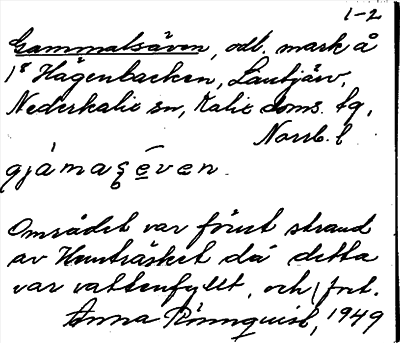 1-2
Gammalsäven, odl. mark å
1⁸ Hägenbacken, Lantjärv,
Nederkalix sn, Kalix doms. tg,
Norrb. l
gjámaʂévęn.
Området var förut strand
av träsket då detta
var vattenfyllt, och fort.
Anna Rönnquist, 1949